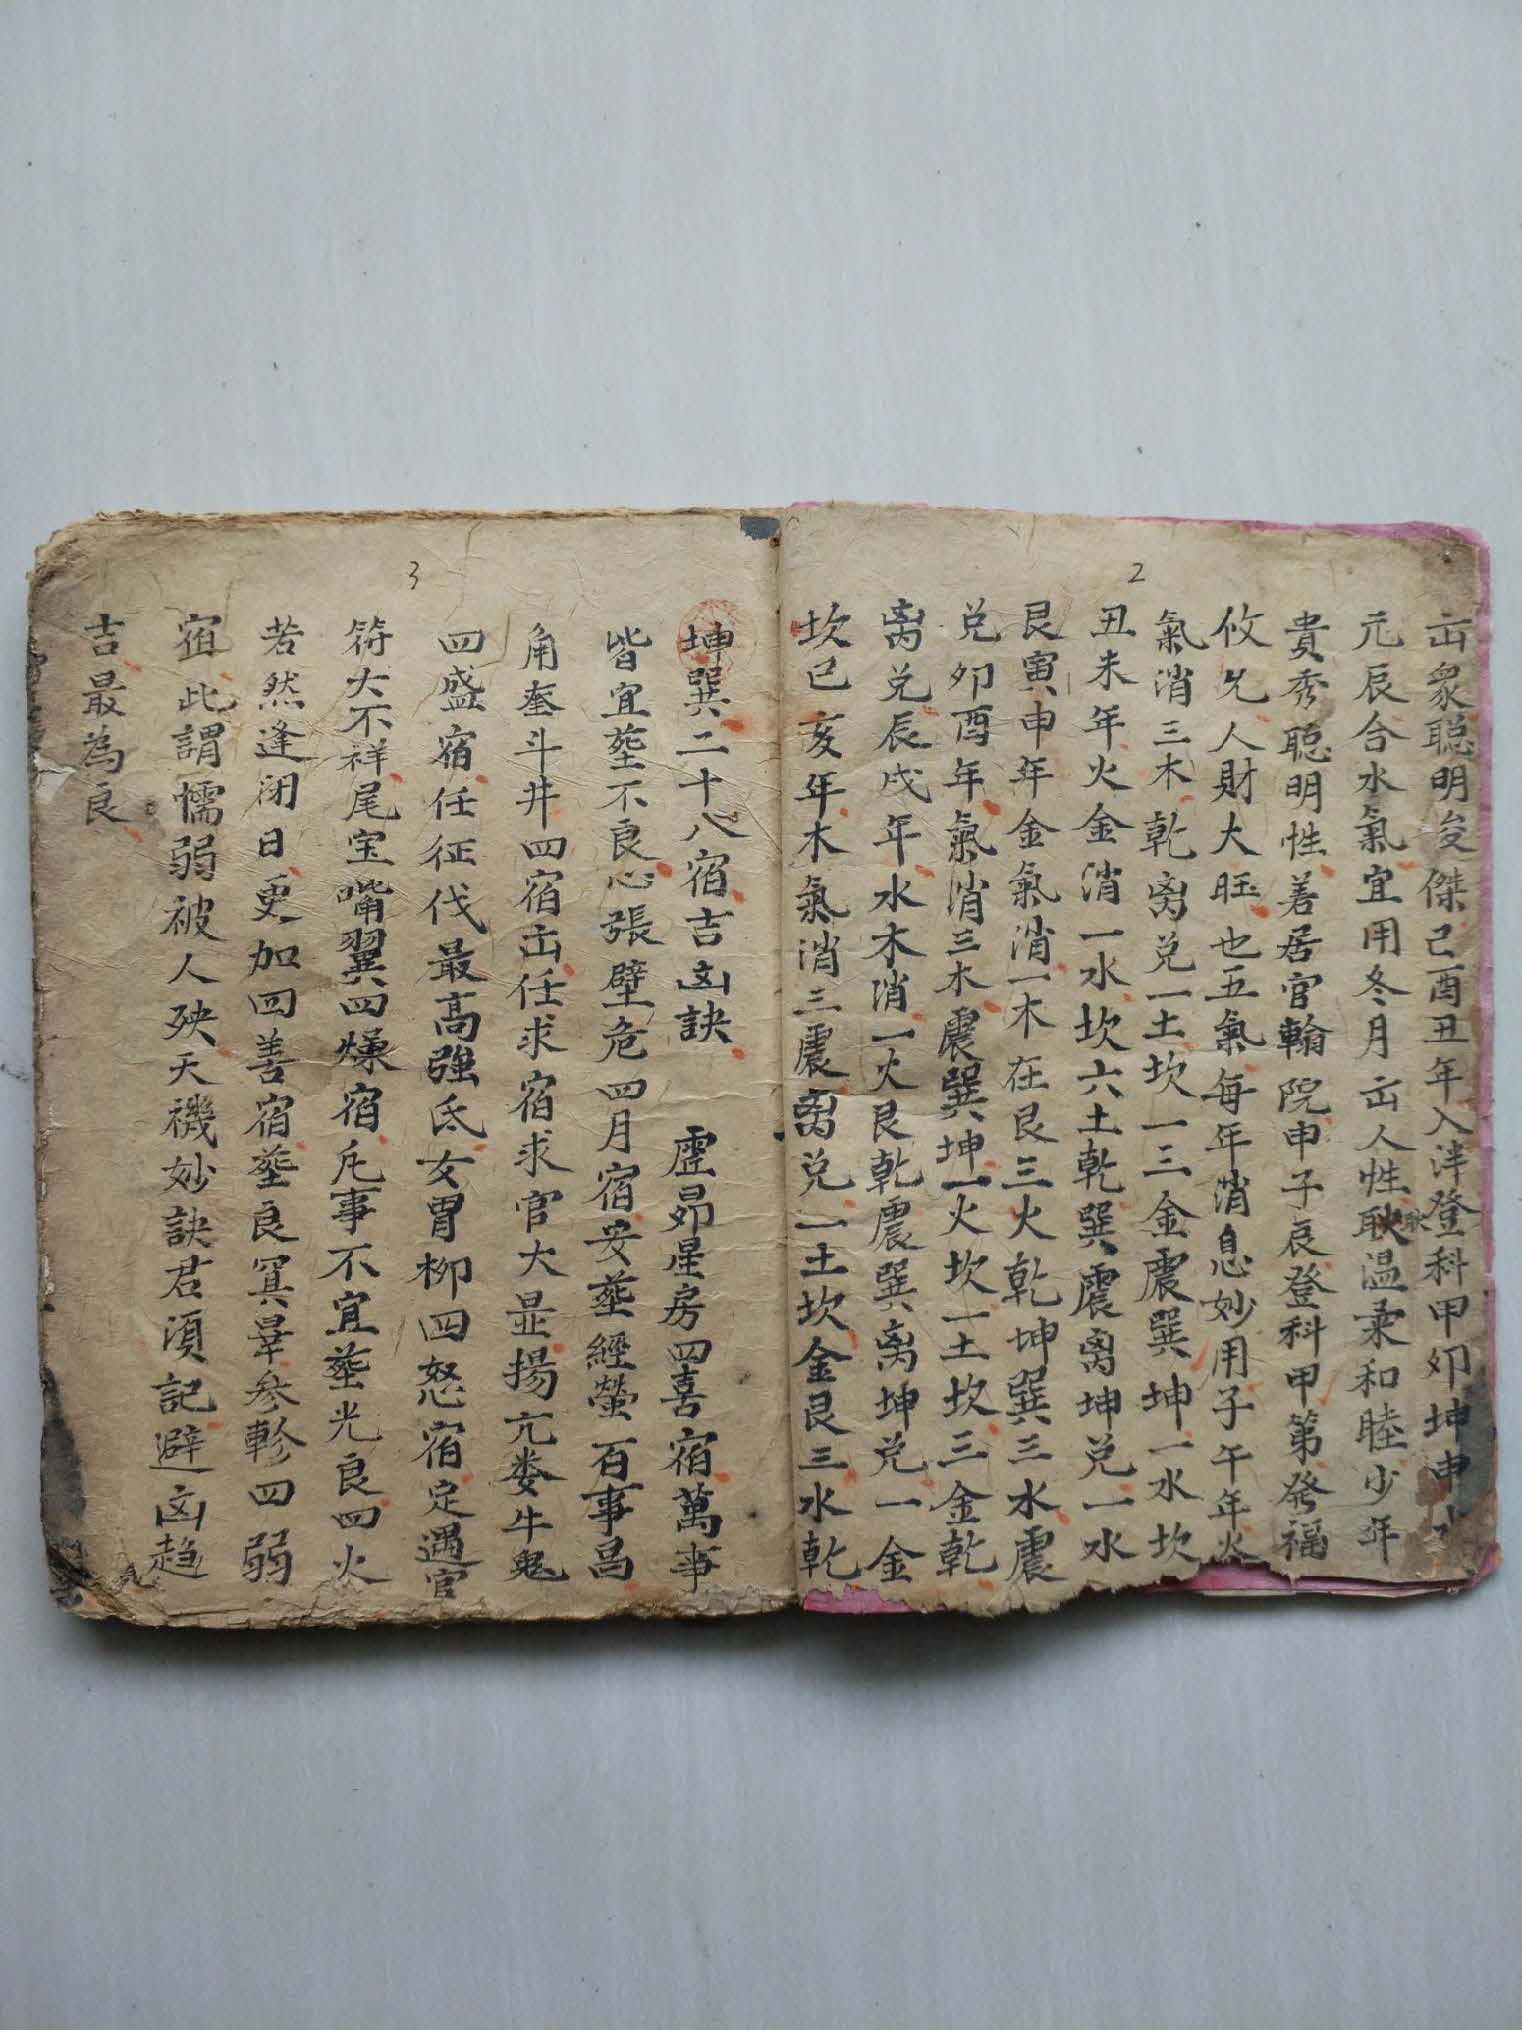 2
出衆聡明俊傑己酉丑年入泮登科甲卯坤申水
元辰合水氣宜用冬月出人性耿温柔和睦少年
耿
貴秀聡明性善居官翰院申子辰登科甲第癸福
攸兄人財大旺也五氣每年消息妙用子午年火
氣消三木乾离兑一土坎一三金震巽坤一水坎
丑未年火金消一水坎六土乾巽震离坤兑一水
艮寅申年金氣消一木在艮三火乾坤巽三水震
兑卯酉年氣消三木震巽坤一火坎一土坎三金乾
离兑辰戌年水木消一火艮乾震巽离坤兑一金
坎巳亥年木氣消三震离兑一土坎金艮三水乾
3
坤巽二十八宿吉凶訣 虚昴星房四喜宿萬事
皆宜塟不良心張壁危四月宿安塟經營百事昌
角奎斗井四宿出任求宿求官大显揚亢娄牛鬼
四盛宿任征伐最高强氐女胃柳四怒宿定遇官
符大不祥尾室嘴翼四燥宿凡事不宜塟光良四火
若然逢闭日更加四善宿塟良箕畢参軫四弱
宿此謂懦弱被人殃天機妙訣君須記避凶趋
吉最為良